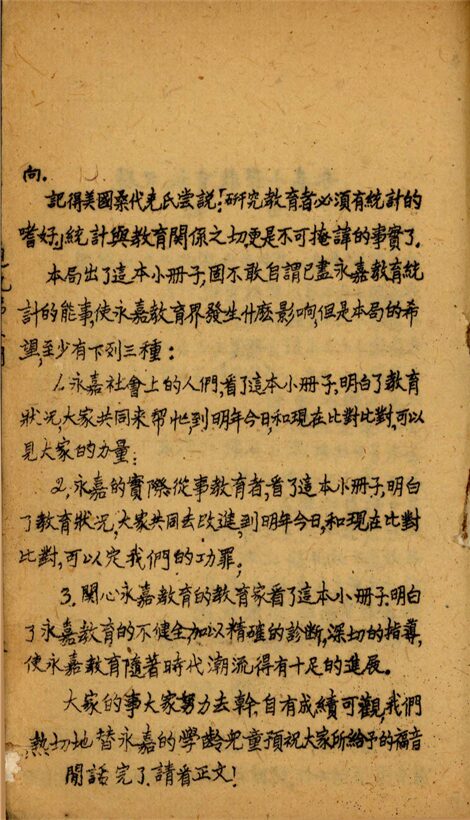 向.
記得美國桑代克氏嘗説:「研究教育者必須有統計的
嗜好」統計與教育關係之切更是不可掩諱的事實了.
本局出了這本小册子,固不敢自謂已盡永嘉教育統
計的能事,使永嘉教育界發生什麽影响,但是本局的希
望,至少有下列三種：
1.永嘉社會上的人們,看了這本小册子,明白了教育
狀况,大家共同来帮忙,到明年今日,和現在比對比對,可以
見大家的力量；
2,永嘉的實際從事教育者,看了這本小册子,明白
了教育狀况,大家共同去改進,到明年今日,和現在比對
比對,可以定我們的功罪；
3.関心永嘉教育的教育家看了這本小册子.明白
了永嘉教育的不健全,加以精確的診斷,深切的指導,
使永嘉教育隨著時代潮流得有十足的進展。
大家的事大家努力去幹.自有成績可觀,我們
熱切地替永嘉的學齡兒童預祝大家所給予的福音
閒話完了.請看正文!